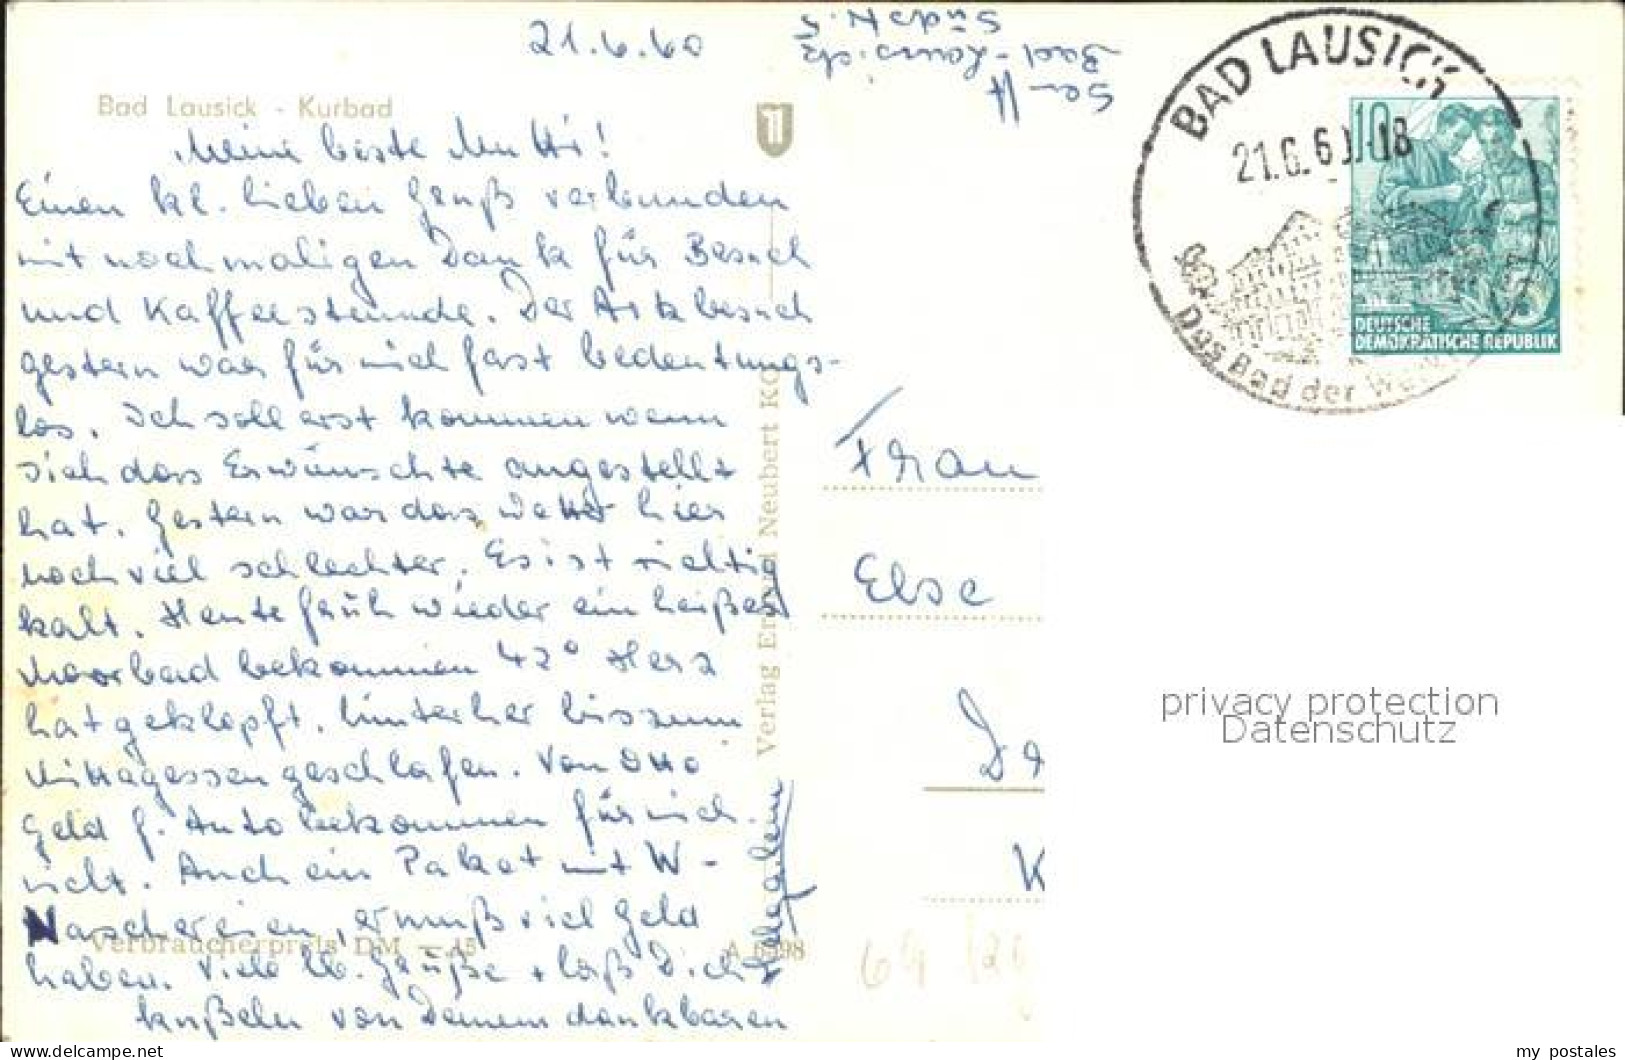 21.6.60
Bad Lausick - Kurbad
Meine beste Mutti!
Einen kl. lieben Gruß verbunden
mit nochmaligen Dank für Besuch
und Kaffeestunde. Der Arztbesuch
gestern war für mich fast bedeutungs-
los. Ich soll erst kommen wenn
sich das Erwünschte angestellt
hat. Gestern war das Wetter hier
noch viel schlechter. Es ist richtig
kalt. Heute früh wieder ein heißes
Moorbad bekommen 42° Herz
hat geklopft. Hinterher bis zum
Mittagessen geschlafen. Von Otto
Geld f. Auto bekommen für mich
nicht. Auch ein Paket mit W-
Naschereien, er muß viel Geld
haben. Viele lb. Grüße + laß Dich
küßeln von Deinem dankbaren
Verbraucherpreis DM —.15
A 6998
Verlag Erhard Neubert KG
Bad-Lausick
Südstr. 5
BAD LAUSICK
21.6.60.-18
Das Bad der Werkt
10
DEUTSCHE
DEMOKRATISCHE REPUBLIK
Frau
Else
K
privacy protection
Datenschutz
my postales